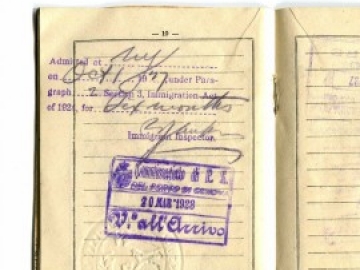 — 19 —
Admitted at NY
on Oct 1 1927 under Para-
graph 2 Sec. 3, Immigration Act
of 1924, for Six months
Immigrant Inspector.
Commissariato di P. S.
DEL PORTO DI GENOVA
20 MAR 1928
V.° all'Arrivo